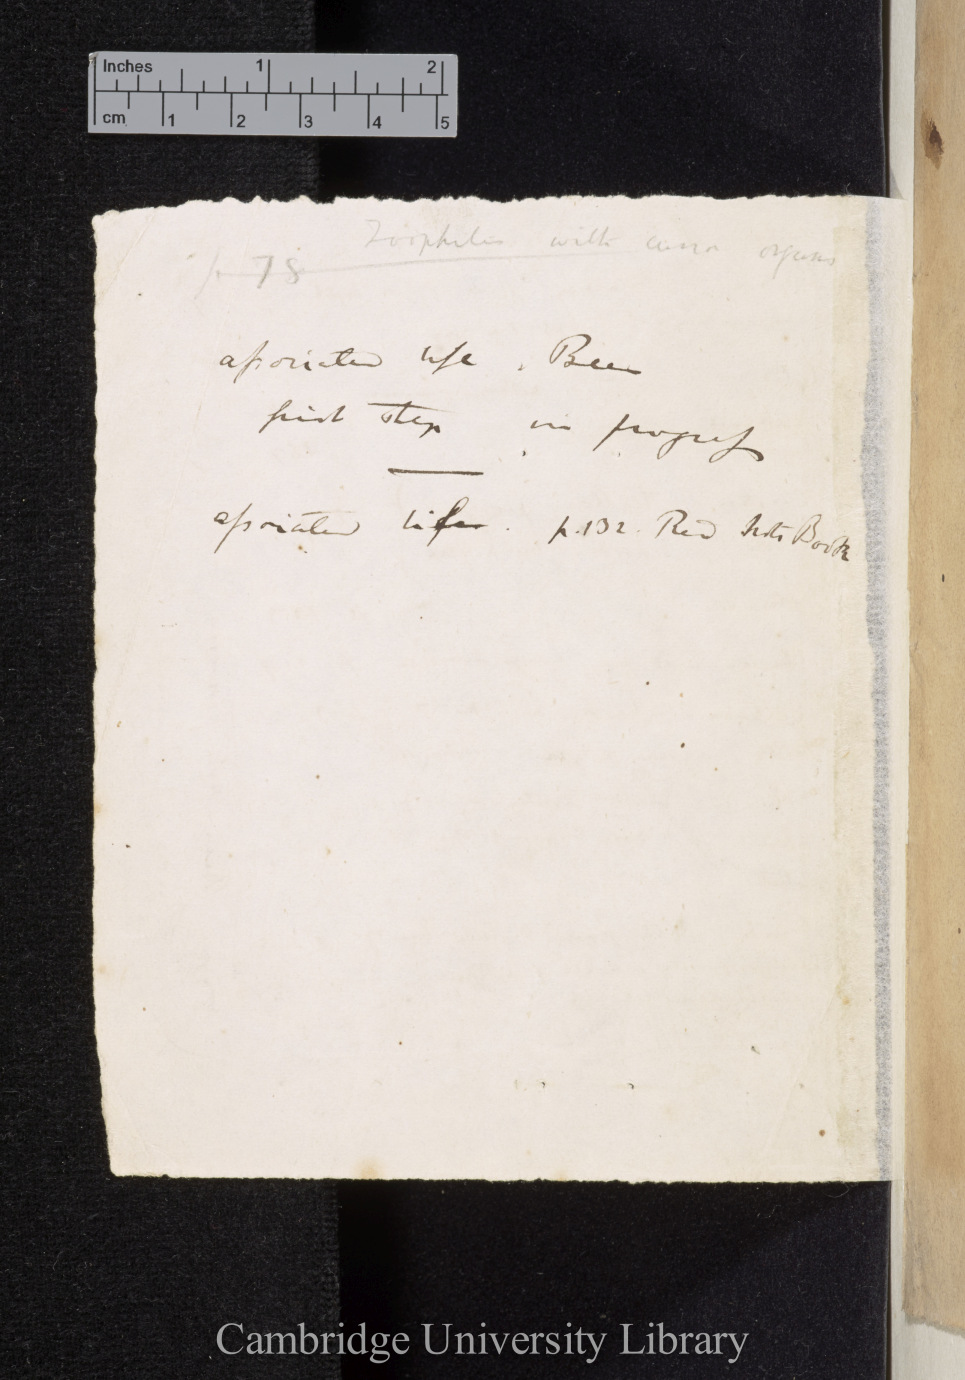 Inches 1 2
cm 1 2 3 4 5
Zoophites with organs
p 78
associated life. Been
first step in progress
associated life. p.132. Red Note Book
Cambridge University Library